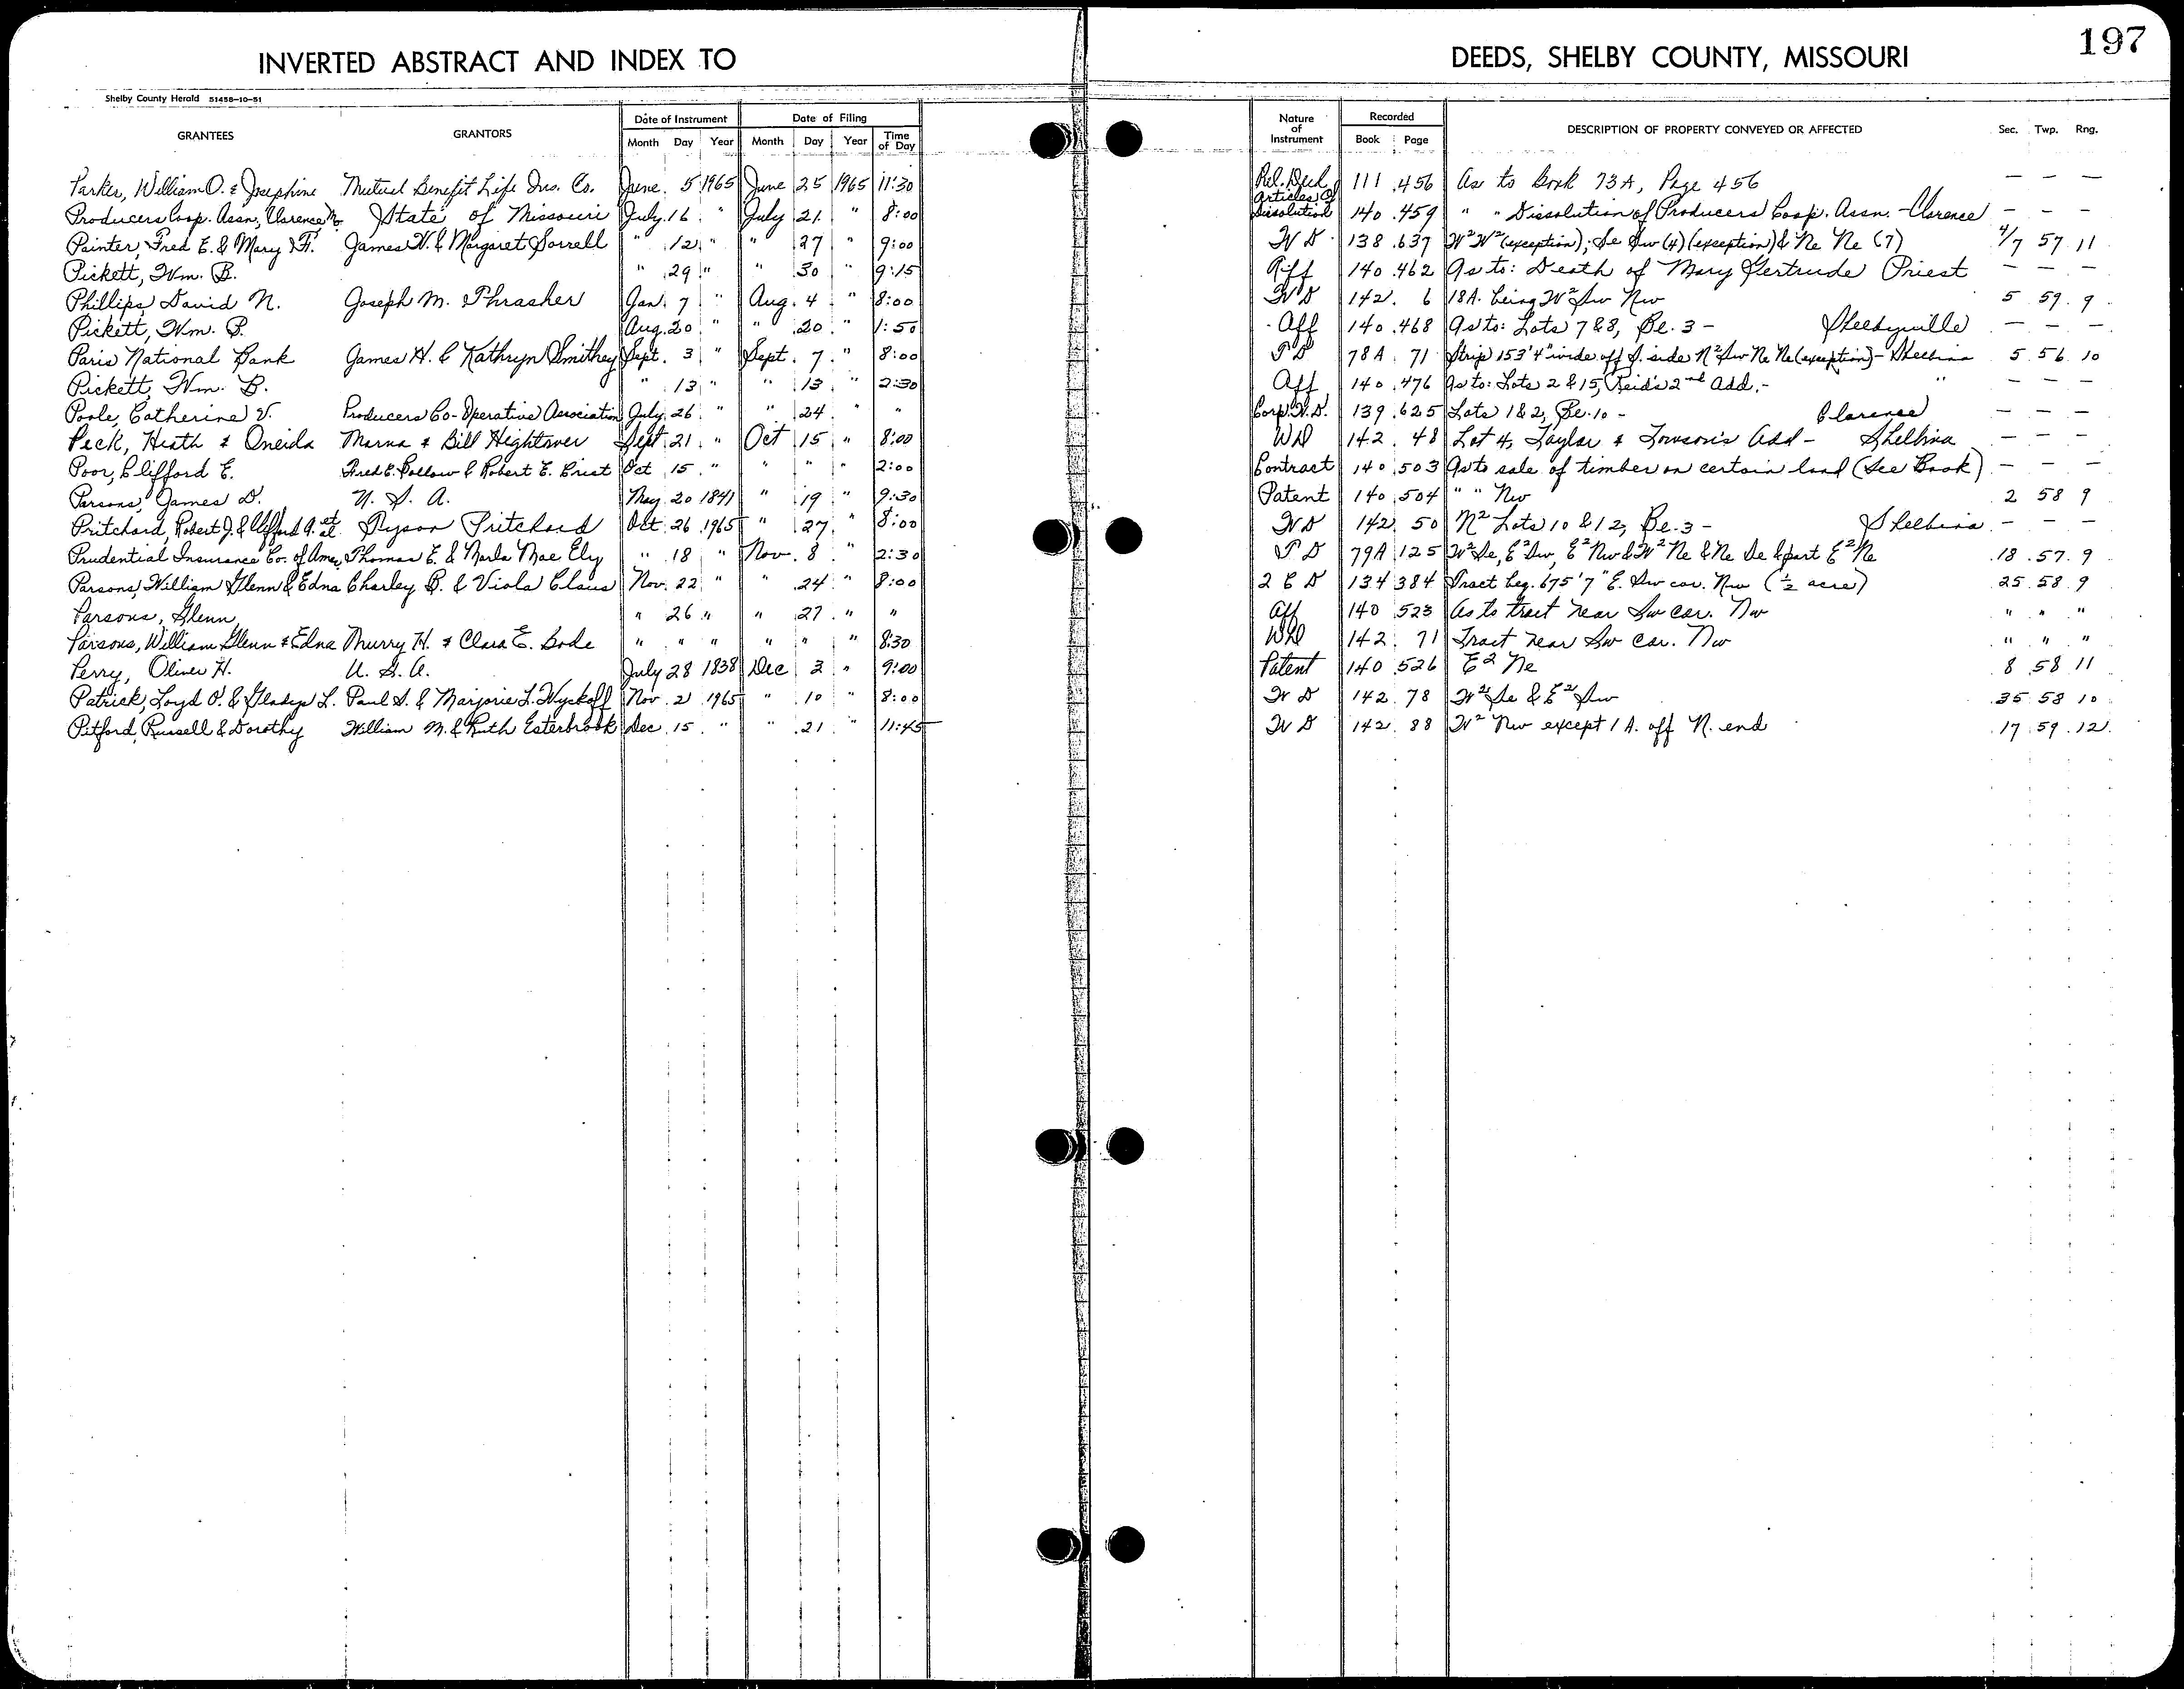 INVERTED ABSTRACT AND INDEX TO DEEDS, SHELBY COUNTY, MISSOURI 197
Shelby County Herald 51458-10-51
GRANTEES GRANTORS Date of Instrument Date of Filing Nature of Instrument Recorded DESCRIPTION OF PROPERTY CONVEYED OR AFFECTED Sec. Twp. Rng.
Month Day Year Month Day Year Time of Day Book Page
Parker, William O. & Josephine Mutual Benefit Life Ins. Co. June 5 1965 June 25 1965 11:30 Rel. Deed 111 456 As to Book 73A, Page 456 — — —
Producers Coop. Assn, Clarence Mo State of Missouri July 16 " July 21 " 8:00 Articles of Dissolution 140 459 " " Dissolution of Producers Coop. Assn. - Clarence — — —
Painter, Fred E. & Mary F. James W. & Margaret Sorrell " 12 " " 27 " 9:00 W D 138 637 W² W² (exception); Se Sw (4) (exception) & Ne Ne (7) 4/7 57 11
Pickett, Wm. B. " 29 " " 30 " 9:15 Aff 140 462 As to: Death of Mary Gertrude Priest — — —
Phillips, David N. Joseph M. Thrasher Jan. 7 " Aug. 4 " 8:00 W D 142 6 18A. being W² Sw Nw 5 59 9
Pickett, Wm. B. Aug. 20 " " 20 " 1:50 Aff 140 468 As to: Lots 7 & 8, Be. 3 - Shelbyville — — —
Paris National Bank James H. & Kathryn Smithey Sept. 3 " Sept. 7 " 8:00 T D 78A 71 Strip 153'4" wide off S. side N² Sw Ne Ne (exception) - Shelbina 5 56 10
Pickett, Wm. B. " 13 " " 13 " 2:30 Aff 140 476 As to: Lots 2 & 15, Reid's 2nd Add. - " — — —
Poole, Catherine V. Producers Co-Operative Association July 26 " " 24 " " Corp. W.D. 139 625 Lots 1 & 2, Be. 10 - Clarence — — —
Peck, Heath & Oneida Marna & Bill Hightower Sept 21 " Oct 15 " 8:00 WD 142 48 Lot 4, Taylor & Towson's Add - Shelbina — — —
Poor, Clifford E. Fred E. Pollow & Robert E. Crist Oct 15 " " " " 2:00 Contract 140 503 As to sale of timber on certain land (See Book) — — —
Parsons, James D. U. S. A. May 20 1841 " 19 " 9:30 Patent 140 504 " " Nw 2 58 9
Pritchard, Robert J. & Clifford A. et al Tyson Pritchard Oct. 26 1965 " 27 " 8:00 W D 142 50 N² Lots 10 & 12, Be. 3 - Shelbina — — —
Prudential Insurance Co. of Amer. Thomas E. & Marla Mae Ely " 18 " Nov. 8 " 2:30 T D 79A 125 W² Se, E² Sw, E² Nw & W² Ne & Ne Se & part E² Ne 18 57 9
Parsons, William Glenn & Edna Charley B. & Viola Claus Nov. 22 " " 24 " 8:00 2 C D 134 384 Tract beg. 675'7" E. Sw cor. Nw (½ acre) 25 58 9
Parsons, Glenn " 26 " " 27 " " Aff 140 523 As to tract near Sw cor. Nw " " "
Parsons, William Glenn & Edna Murry H. & Clara E. Bode " " " " " " 8:30 WD 142 71 Tract near Sw Cor. Nw " " "
Perry, Oliver H. U. S. A. July 28 1838 Dec 2 " 9:00 Patent 140 526 E² Ne 8 58 11
Patrick, Loyd O. & Gladys L. Paul S. & Marjorie L. Wyckoff Nov. 2 1965 " 10 " 8:00 W D 142 78 W² Se & E² Sw 35 58 10
Pitford, Russell & Dorothy William M. & Ruth Esterbrook Dec. 15 " " 21 " 11:45 W D 142 88 W² Nw except 1 A. off N. end 17 59 12